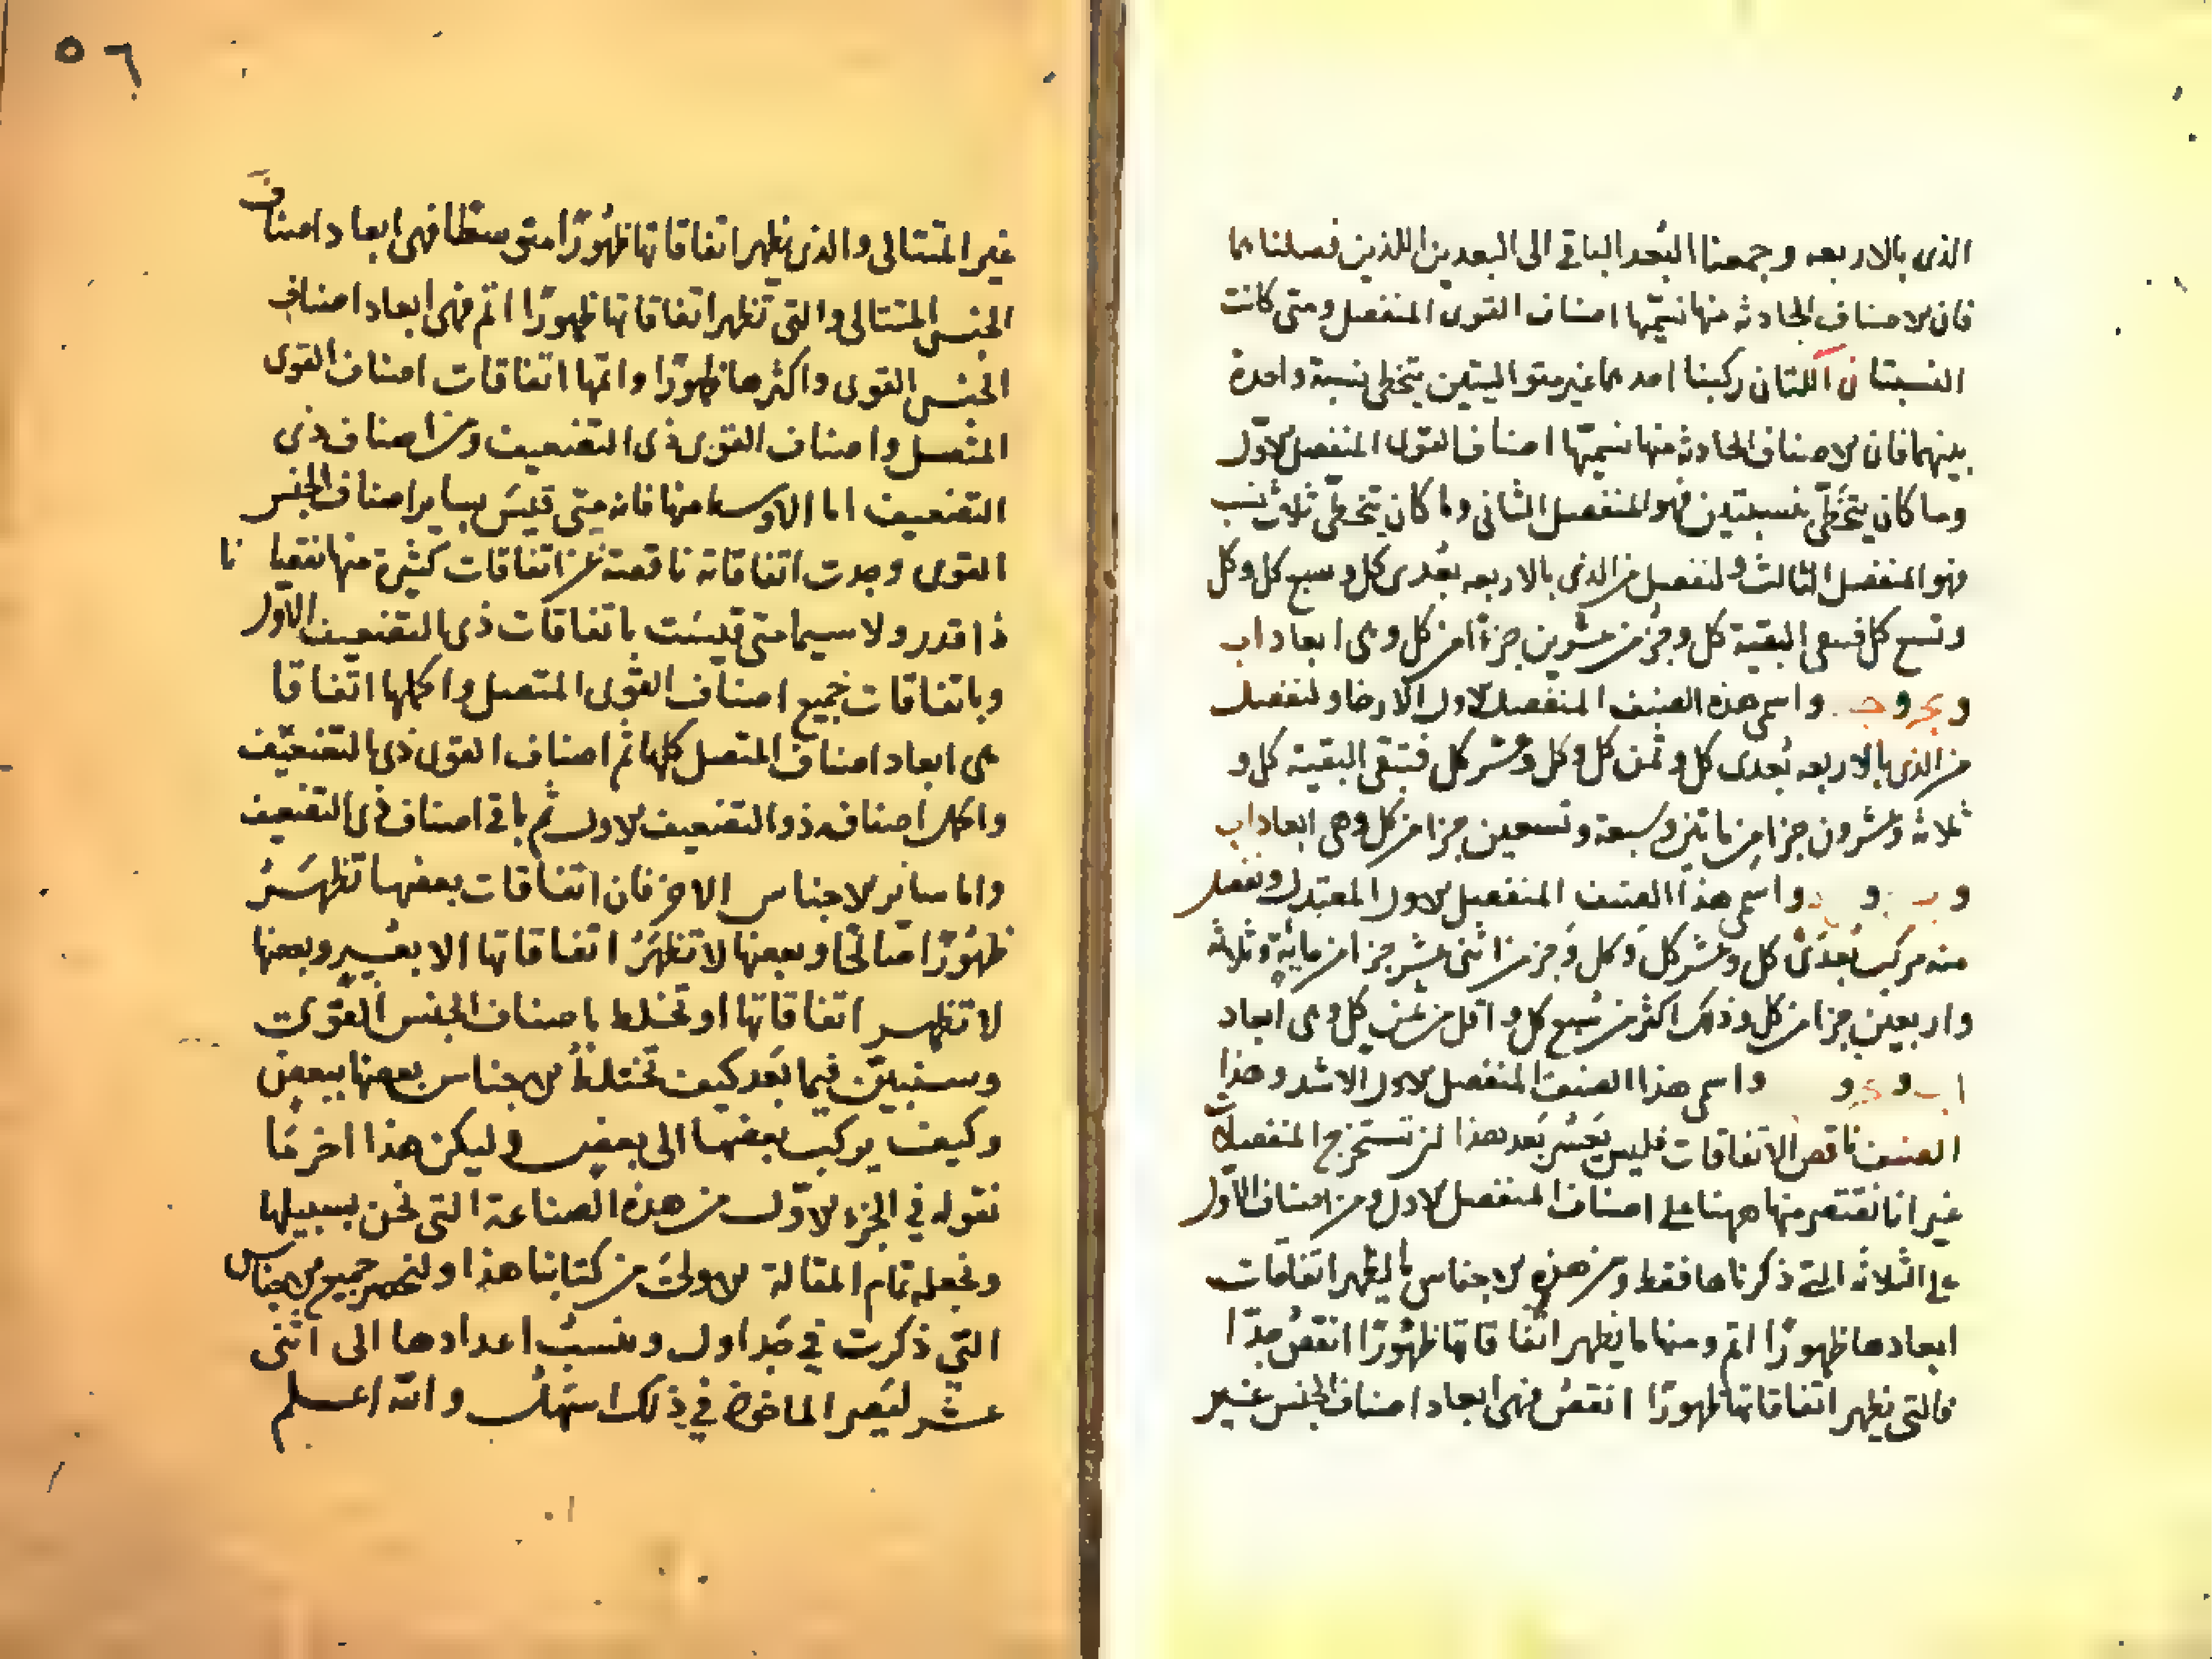 الذى بالاربعه وجمعنا البُعد الباقى الى البعدين اللذين فصلناهما
فان الاصناف الحادثه منها نسمّيها اصناف القوى المنفصل ومتى كانت
النسبتان اللتان ركبنا احدهما غير متواليتين يتخطى نسبة واحدة
بينهما فان الاصناف الحادثه منها نسمّيها اصناف القوى المنفصل الاوّل
وما كان يتخَطّى بنسبتين فهو المنفصل الثانى وما كان يتخطّى ثلاث نسب
فهو المنفصل الثالث ولنفصل من الذى بالاربعه بُعدى كل وسبع كل وكل
وتسع كل فتبقى البقية كل وجزء من عشرين جزءًا من كل وهى ابعاد اب
و بج و جد واسمى هذه الصنف المنفصل الاول الارخا ولنفصل
من الذى بالاربعه بُعدى كل وثمن كل وكل وعشر كل فتبقى البقية كل و
ثلاثه وعشرون جزا من مائتين وسبعة وتسعين جزا من كل وهى ابعاد اب
و ب و واسمى هذا الصنف المنفصل الاول المعتدل ونفصل
منه مركب بُعدَى كل وعشر كل وكل وجز من اثنى عشر جزا من مايةٍ وثلاثه
واربعين جزا من كل وذلك اكثر من سُبع كل واقل من كل وهى ابعاد
اب و و واسمى هذا الصنف المنفصل الاول الاشد وهذا
الصنف ناقص الاتفاقات فليس يَعسُر بَعد هذا ان تستخرج المنفصلات
غير انا نقتصر منها ههنا على اصناف المنفصل الاول ومن اصناف الاوّل
على الثلاثه التى ذكرناها فقط ومن هذه الاجناس ما يظهر اتفاقات
ابعادها ظهورًا اتم ومنها ما يظهر اتفاقاتها ظهُورًا انقصُ جدّا
فالتى يظهر اتفاقاتها ظهورًا انقصُ فهى ابعاد اصناف الجنس غير
٥٦
غير المتتالى والذى يظهر اتفاقاتها ظهُورًا متوسطا فهى ابعاد اصناف
الجنس المتتالى والتى تظهر اتفاقاتها ظهورًا اتم فهى ابعاد اصناف
الجنس القوى واكثرها ظهورًا واتمها اتفاقات اصناف القوى
المتصل واصناف القوى ذى التضعيف ومن اصناف ذى
التضعيف اما الاوسط منها فانه متى قيسَ بساير اصناف الجنس
القوى وجدت اتفاقاته ناقصة عن اتفاقات كثيرة منها نقصانا
ذا قدر ولا سيما متى قيسَت باتفاقات ذى التضعيف الاوّل
وباتفاقات جميع اصناف القوى المتصل واكملها اتفاقا
هى ابعاد اصناف المتصل كلها ثم اصناف القوى ذى التضعيف
واكمل اصنافه ذو التضعيف الاول ثم باقى اصناف ذى التضعيف
واما سائر الاجناس الاخر فان اتفاقات بعضها تظهَرُ
ظهُورًا صالحًا وبعضها لا تظهَرُ اتفاقاتها الا بعُسرٍ وبعضها
لا تظهر اتفاقاتها او تخلط باصناف الجنس القوى
وسنبيّن فيما بَعد كيف تختلط الاجناس بعضها ببعض
وكيف يركب بعضها الى بعض وليكن هذا اخر مَا
نقوله فى الجزء الاوّل من هذه الصناعة التى نحن بسبيلها
ونجعله تمام المقالة الاولىَ من كتابنا هذا ولنحصر جميع الاجناس
التى ذكرت فى جَداول وننسبُ اعدادها الى اثنى
عشر ليَصير الماخوذ فى ذلك اسهلُ والله اعلم